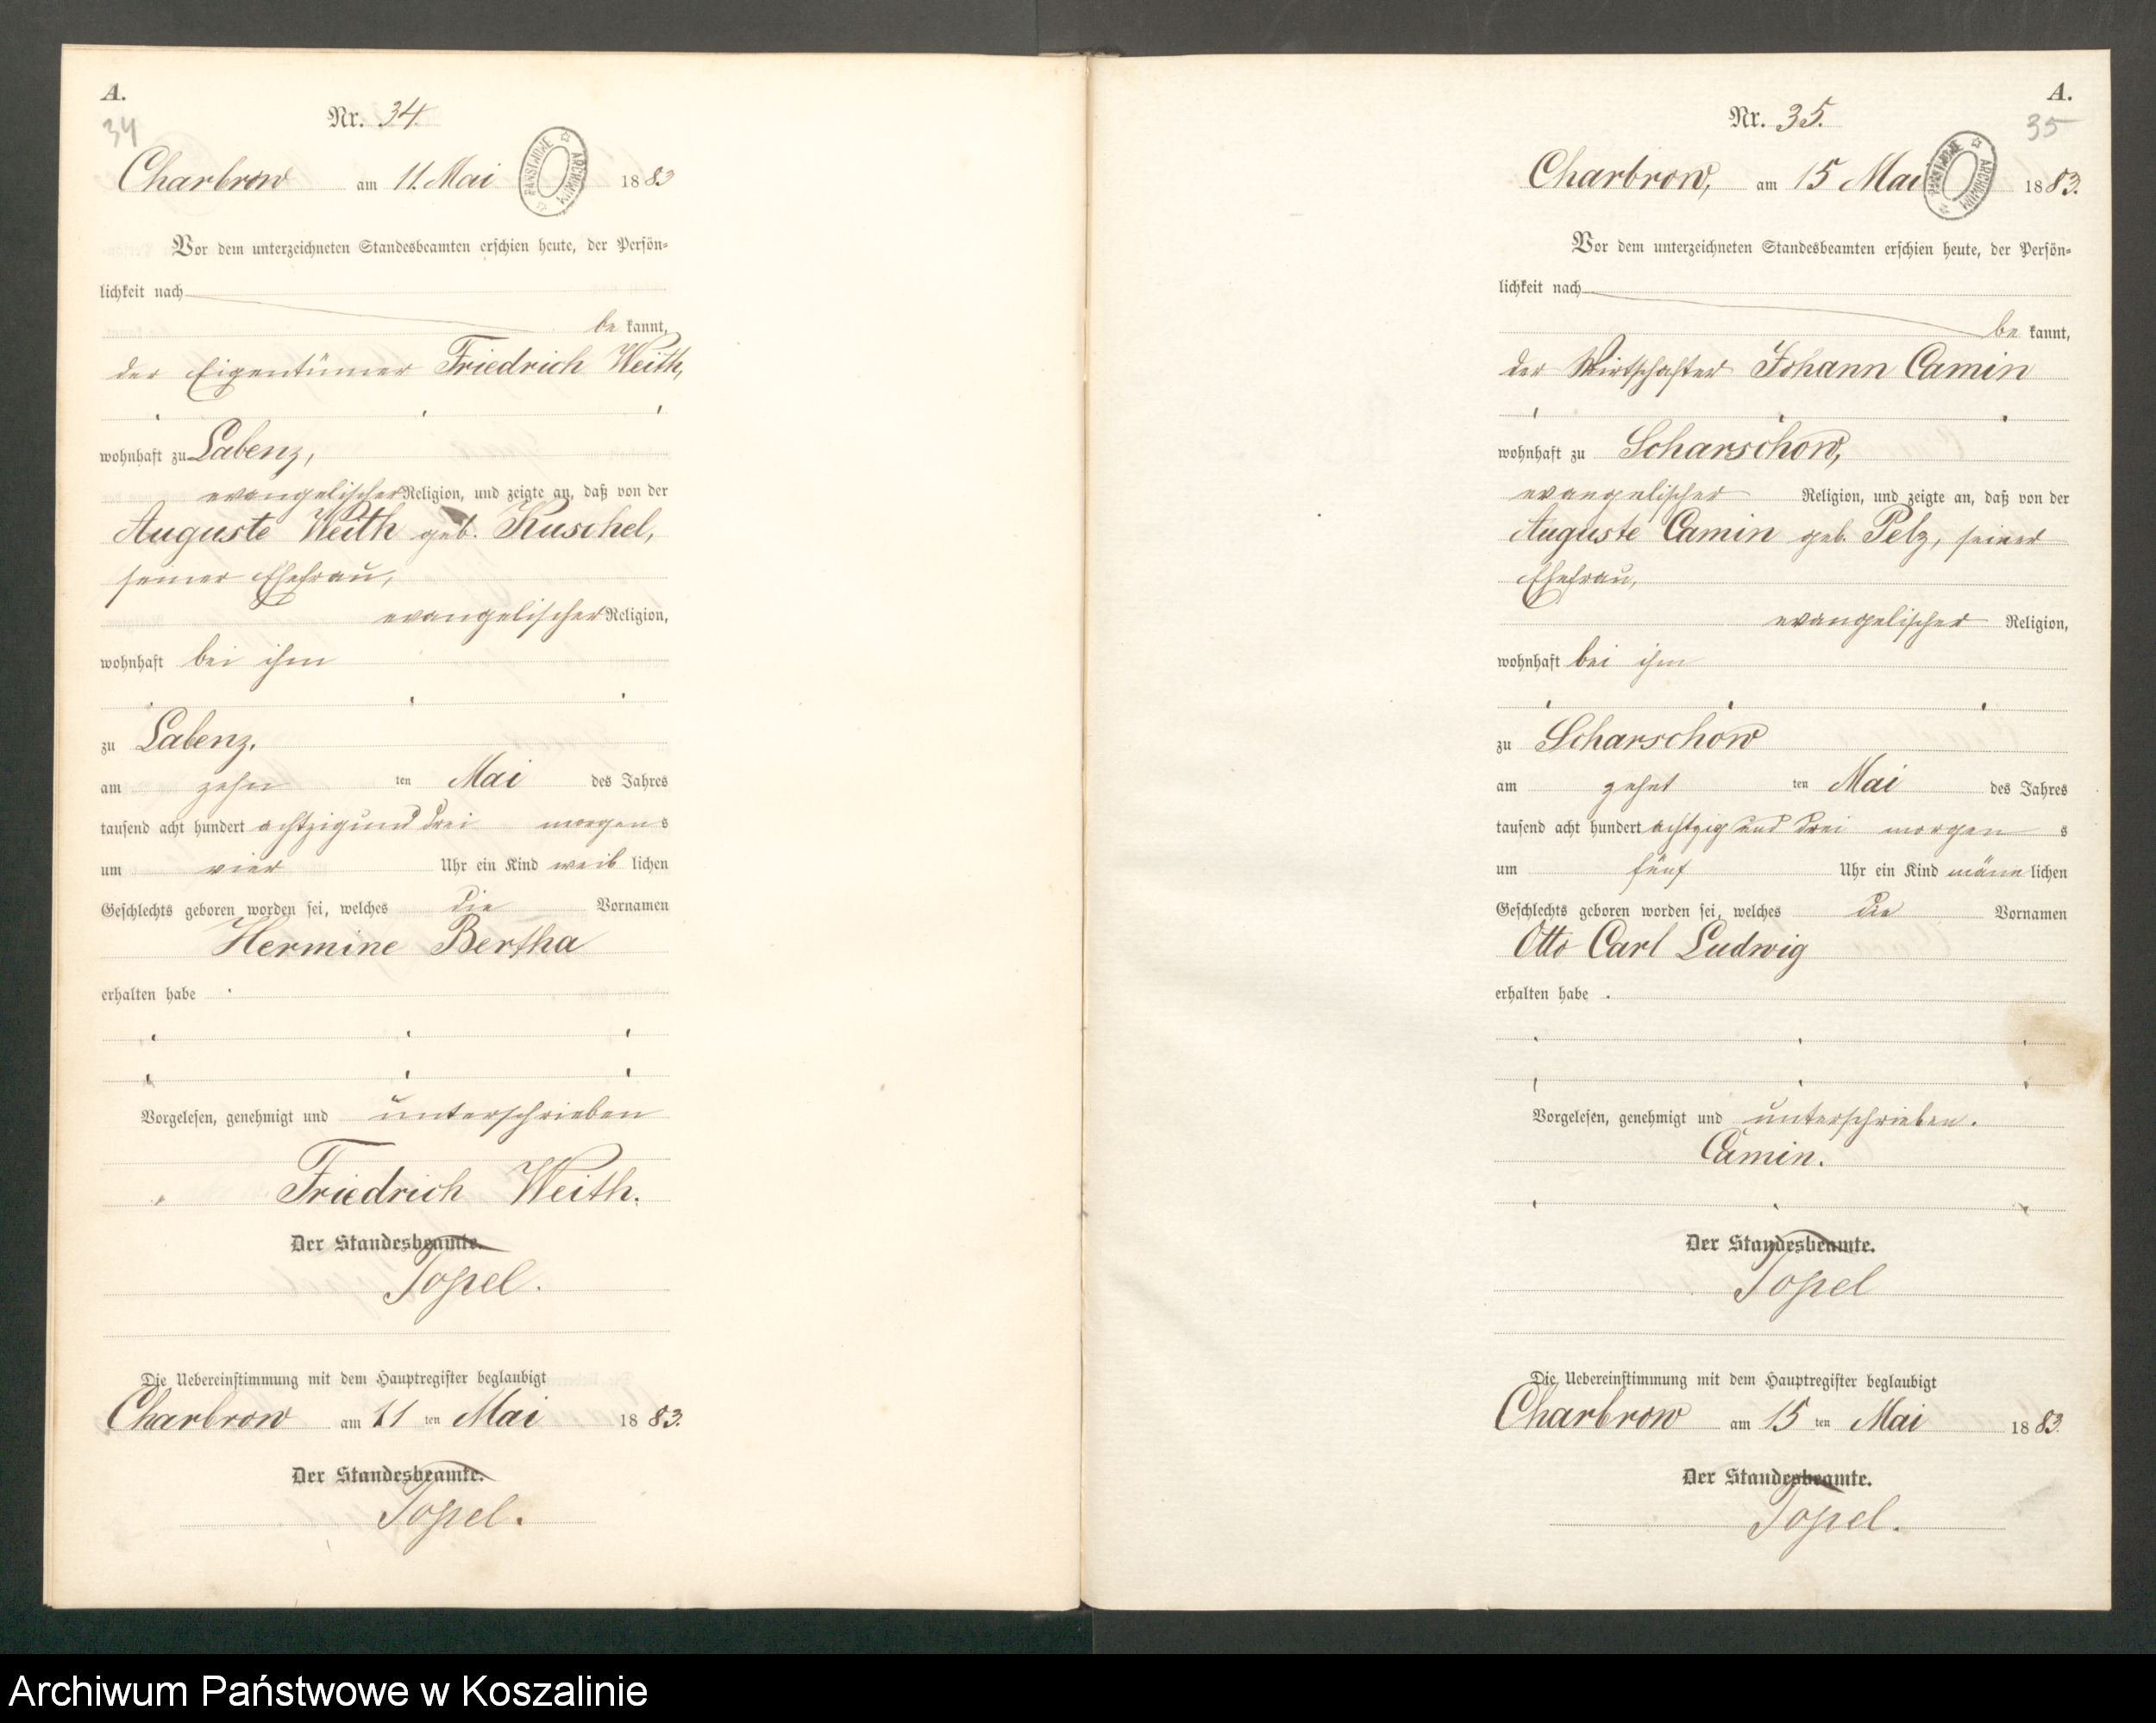 A.
34
Nr. 34.
Charbrow am 11. Mai 1883
PAŃSTWOWE ARCHIWUM
Vor dem unterzeichneten Standesbeamten erschien heute, der Persön-
lichkeit nach
be kannt,
der Eigentümer Friedrich Weith,
wohnhaft zu Labenz,
evangelischer Religion, und zeigte an, daß von der
Auguste Weith geb. Kuschel,
seiner Ehefrau,
evangelischer Religion,
wohnhaft bei ihm
zu Labenz,
am zehn ten Mai des Jahres
tausend acht hundert achtzig und drei morgens
um vier Uhr ein Kind weib lichen
Geschlechts geboren worden sei, welches die Vornamen
Hermine Bertha
erhalten habe .
Vorgelesen, genehmigt und unterschrieben
Friedrich Weith.
Der Standesbeamte.
Topel.
Die Uebereinstimmung mit dem Hauptregister beglaubigt
Charbrow am 11 ten Mai 1883.
Der Standesbeamte.
Topel.
A.
35
Nr. 35.
Charbrow, am 15 Mai 1883.
PAŃSTWOWE ARCHIWUM
Vor dem unterzeichneten Standesbeamten erschien heute, der Persön-
lichkeit nach
be kannt,
der Wirtschafter Johann Camin
wohnhaft zu Scharschow,
evangelischer Religion, und zeigte an, daß von der
Auguste Camin geb. Pelz, seiner
Ehefrau,
evangelischer Religion,
wohnhaft bei ihm
zu Scharschow
am zehnt ten Mai des Jahres
tausend acht hundert achtzig und drei morgen s
um fünf Uhr ein Kind männ lichen
Geschlechts geboren worden sei, welches die Vornamen
Otto Carl Ludwig
erhalten habe .
Vorgelesen, genehmigt und unterschrieben.
Camin.
Der Standesbeamte.
Topel
Die Uebereinstimmung mit dem Hauptregister beglaubigt
Charbrow am 15 ten Mai 1883
Der Standesbeamte.
Topel.
Archiwum Państwowe w Koszalinie